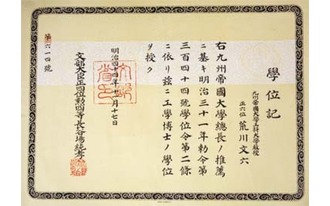 學位記
九州帝國大學工科大學教授
正六位 荒川文六
右九州帝國大學總長ノ推薦
ニ基キ明治三十一年勅令第
三百四十四號學位令第二條
ニ依リ茲ニ工學博士ノ學位
ヲ授ク
明治四十四年 月 十七日
文部大臣正四位勲四等長谷場純孝
第六一四號